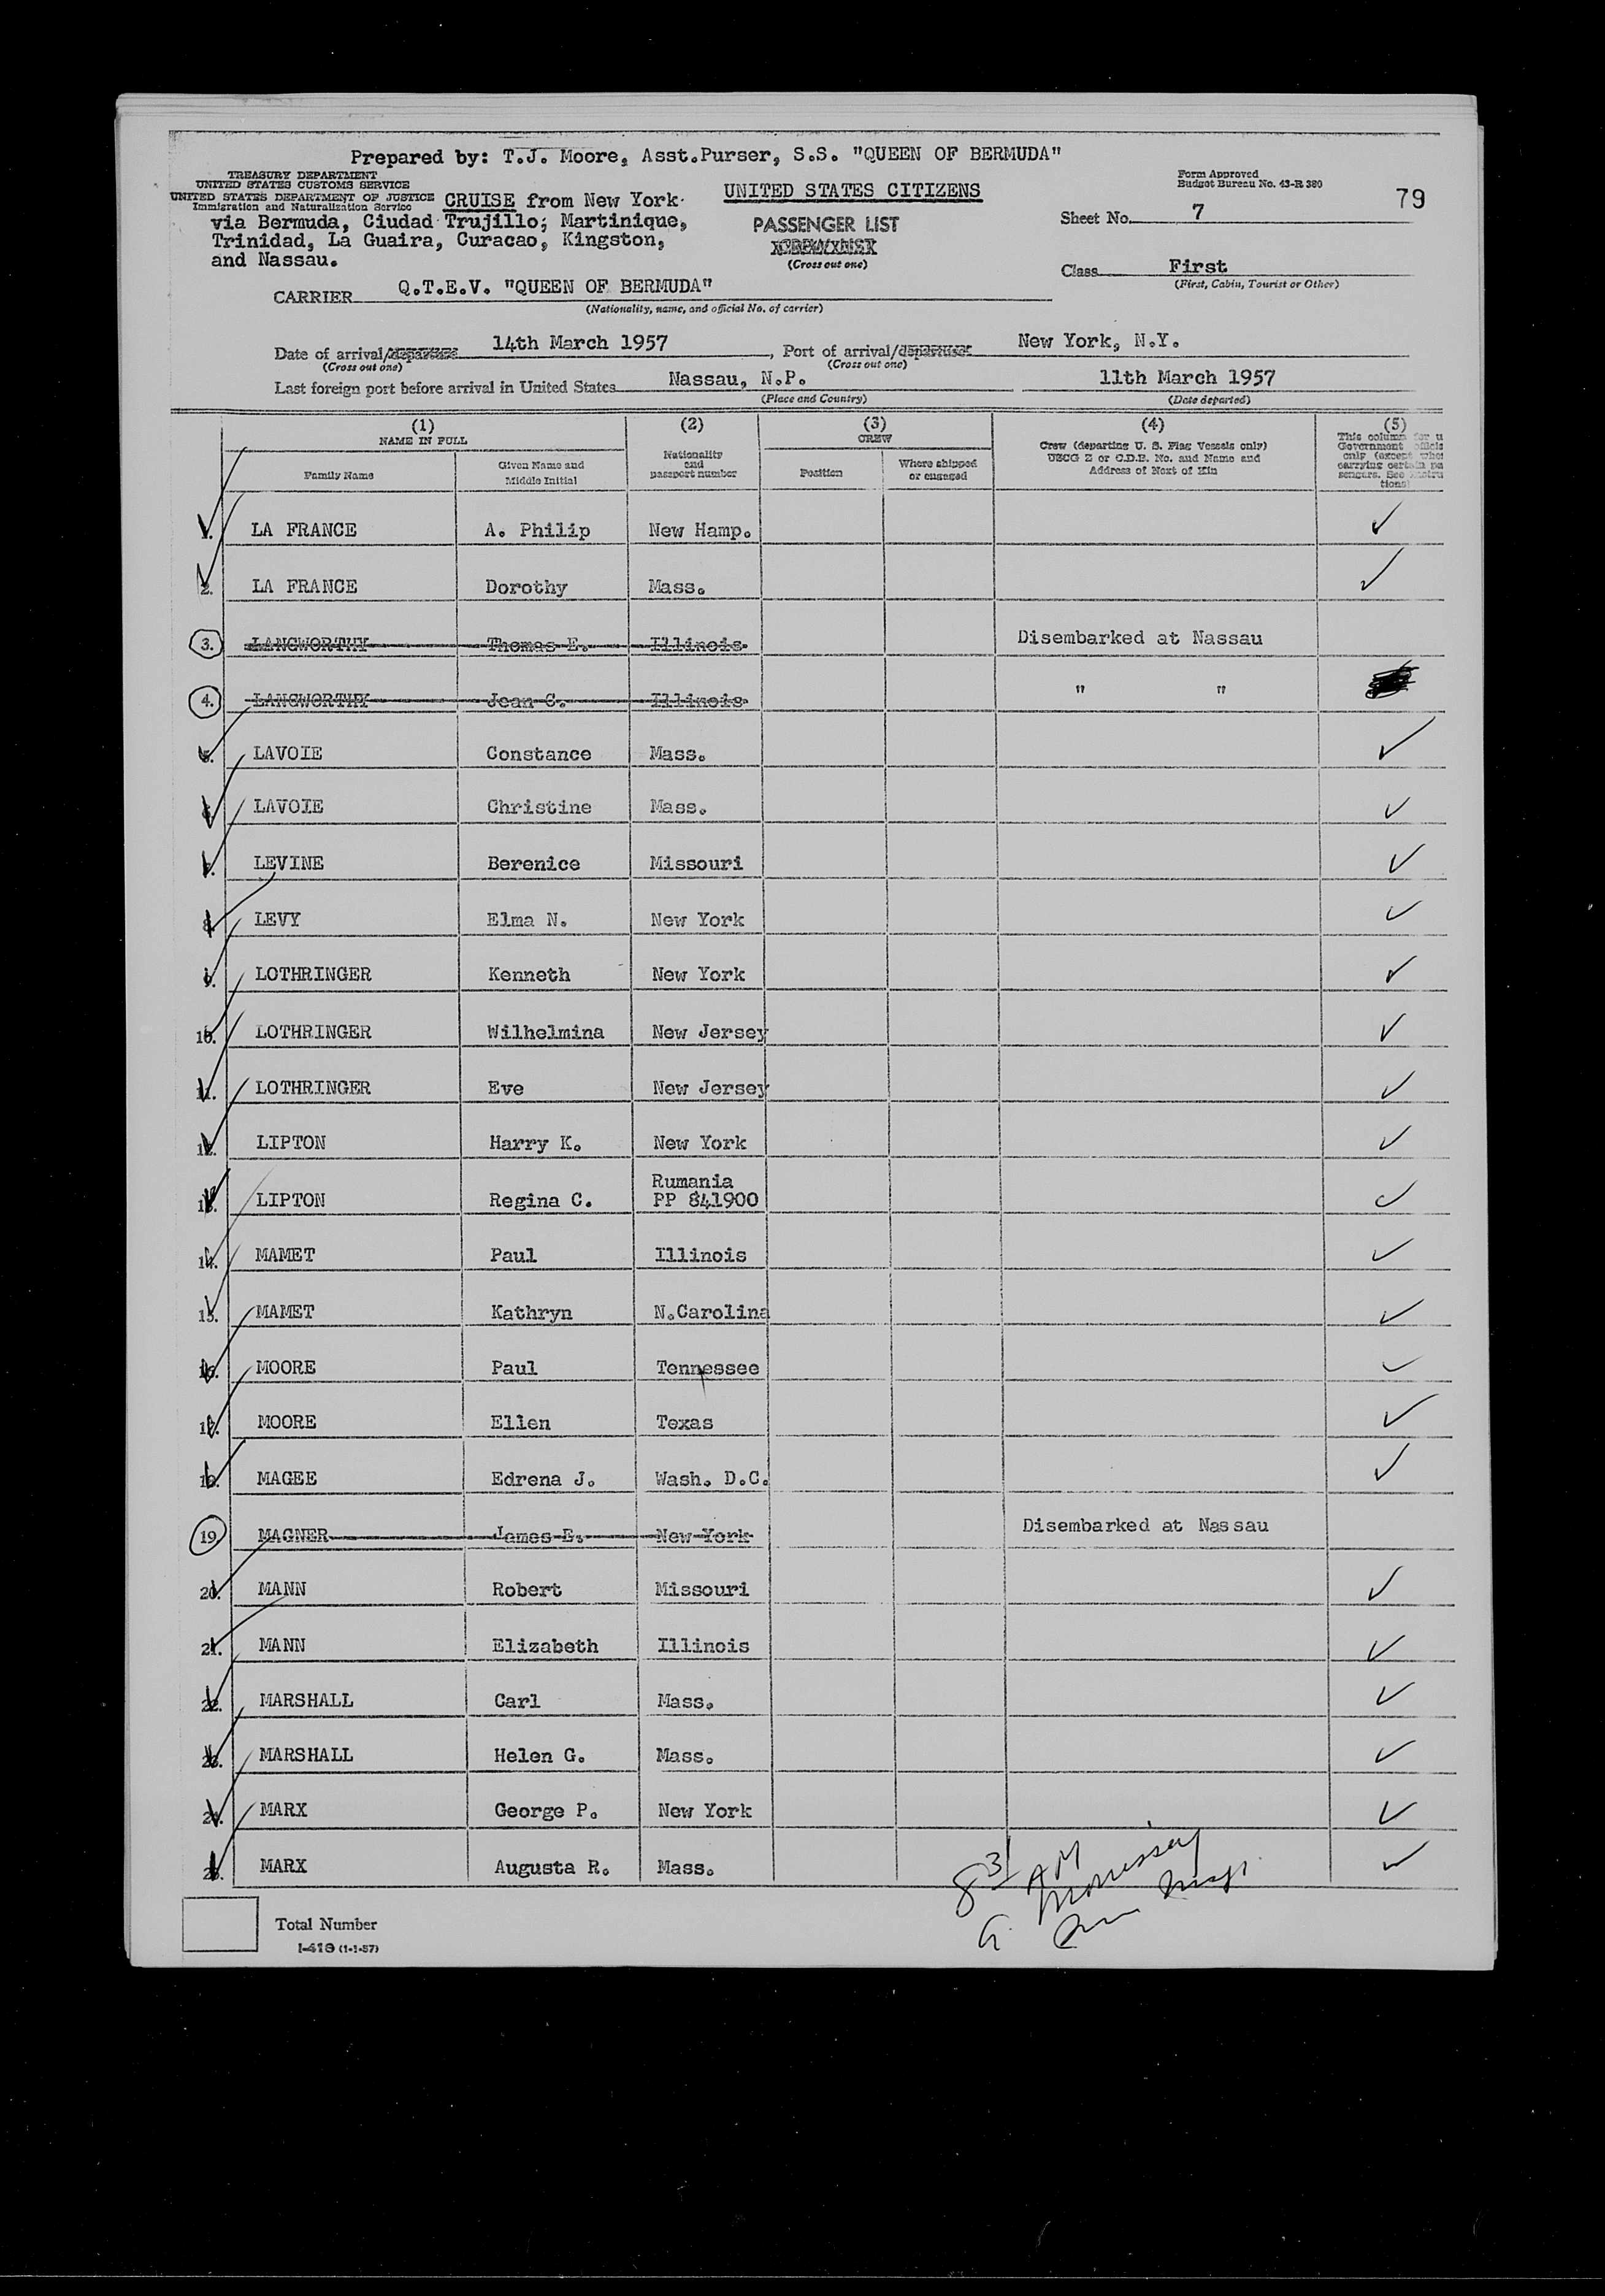 Prepared by: T.J. Moore, Asst.Purser, S.S. "QUEEN OF BERMUDA"
TREASURY DEPARTMENT
UNITED STATES CUSTOMS SERVICE
UNITED STATES DEPARTMENT OF JUSTICE
Immigration and Naturalization Service
CRUISE from New York
via Bermuda, Ciudad Trujillo; Martinique,
Trinidad, La Guaira, Curacao, Kingston,
and Nassau.
UNITED STATES CITIZENS
PASSENGER LIST
(Cross out one)
Form Approved
Budget Bureau No. 43-R 380
79
Sheet No. 7
Class First
(First, Cabin, Tourist or Other)
CARRIER Q.T.E.V. "QUEEN OF BERMUDA"
(Nationality, name, and official No. of carrier)
Date of arrival/departure 14th March 1957, Port of arrival/departure New York, N.Y.
(Cross out one) (Cross out one)
Last foreign port before arrival in United States Nassau, N.P. 11th March 1957
(Place and Country) (Date departed)
(1) (2) (3) (4) (5)
NAME IN FULL
Family Name
Given Name and Middle Initial
Nationality and passport number
CREW
Position
Where shipped or engaged
Crew (departing U. S. Flag Vessels only)
USCG Z or C.D.B. No. and Name and
Address of Next of Kin
This column for u
Government officia
only (except whe
carrying certain pa
sengers. See Instru
tions)
1. LA FRANCE A. Philip New Hamp.
2. LA FRANCE Dorothy Mass.
3. LANGWORTHY Thomas E. Illinois Disembarked at Nassau
4. LANGWORTHY Jean C. Illinois " "
5. LAVOIE Constance Mass.
6. LAVOIE Christine Mass.
7. LEVINE Berenice Missouri
8. LEVY Elma N. New York
9. LOTHRINGER Kenneth New York
10. LOTHRINGER Wilhelmina New Jersey
11. LOTHRINGER Eve New Jersey
12. LIPTON Harry K. New York
13. LIPTON Regina C. Rumania PP 841900
14. MAMET Paul Illinois
15. MAMET Kathryn N.Carolina
16. MOORE Paul Tennessee
17. MOORE Ellen Texas
18. MAGEE Edrena J. Wash. D.C.
19. MAGNER James E. New York Disembarked at Nassau
20. MANN Robert Missouri
21. MANN Elizabeth Illinois
22. MARSHALL Carl Mass.
23. MARSHALL Helen G. Mass.
24. MARX George P. New York
25. MARX Augusta R. Mass.
8 31 AM
G. Morrissey
Total Number
I-418 (1-1-57)